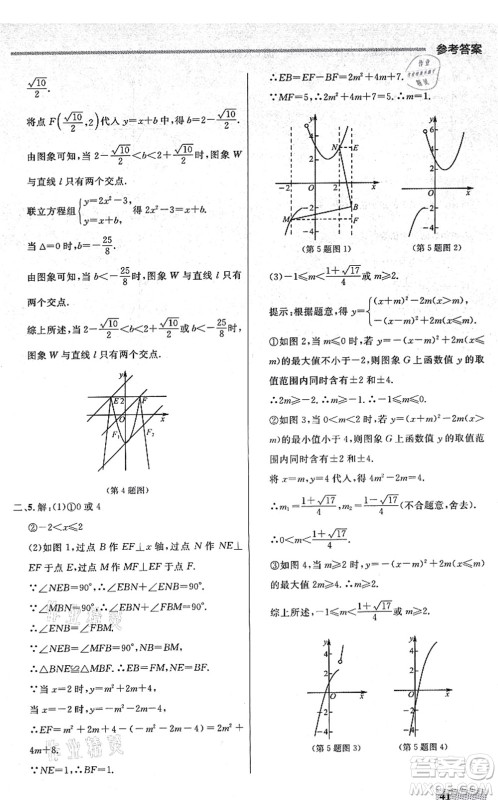 参考答案
√10/2.
将点 F(√10/2,2)代入 y=x+b 中,得 b=2-√10/2.
由图象可知,当 2-√10/2<b<2+√10/2时,图象 W
与直线 l 只有两个交点.
联立方程组{y=2x²-3, y=x+b,得 2x²-3=x+b.
当 Δ=0 时,b=-25/8.
由图象可知,当 b<-25/8时,图象 W 与直线 l 只
有两个交点.
综上所述,当 2-√10/2<b<2+√10/2或 b<-25/8时,
图象 W 与直线 l 只有两个交点.
y
E
2
F
F₁
F₂
x
(第 4 题图)
二、5. 解:(1)①0 或 4
②-2<x≤2
(2)如图 1,过点 B 作 EF⊥x 轴,过点 N 作
NE⊥EF 于点 E,过点 M 作 MF⊥EF 于点 F.
∵∠NEB=90°,∴∠ENB+∠EBN=90°.
∵∠MBN=90°,∴∠EBN+∠FBM=90°.
∴∠ENB=∠FBM.
∵∠NEB=∠MFB=90°,BN=BM,
∴△NEB≌△BFM.∴NE=BF,EB=FM.
∵当 x=m 时,y=-m²-2m-4;
当 x>m 时,y=m²+2m+4,
∴EF=m²+2m+4-(-m²-2m-4)=2m²+
4m+8.
∵NE=1,∴BF=1.
∴EB=EF-BF=2m²+4m+7.
∵MF=5,∴2m²+4m+7=5.∴m=1.
y
4
N
E
-2
O
2
x
-2
B
M
F
-4
(第 5 题图 1)
y
6
4
O
2
x
-2
-4
(第 5 题图 2)
(3)-1≤m<1+√17/4或 m≥2.
提示:根据题意,得 y={(x+m)²-2m(x>m), -(x-m)²+2m(x≤m).
①如图 2,当 m≤0 时,若 y=-(x-m)²+2m(x≤m)
的最大值不小于-2,则图象 G 上函数值 y 的取
值范围内同时含有±2 和±4.
∴2m≥-2.∴m≥-1.∴-1≤m≤0.
②如图 3,当 0<m≤2 时,若 y=(x+m)²-2m(x>m)
的最小值小于 4,则图象 G 上函数值 y 的取值范
围内同时含有±2 和±4.
将 x=m,y=4 代入,得 4m²-2m=4.
∴m₁=1+√17/4,m₂=1-√17/4(不合题意,舍去).
∴0<m<1+√17/4.
③如图 4,当 m≥2 时,若 y=-(x-m)²+2m(x≤m)
的最大值 2m≥4,∴m≥2.
综上所述,-1≤m<1+√17/4或 m≥2.
y
4
2
O
x
-2
-4
(第 5 题图 3)
y
4
2
O
x
-2
-4
(第 5 题图 4)
41